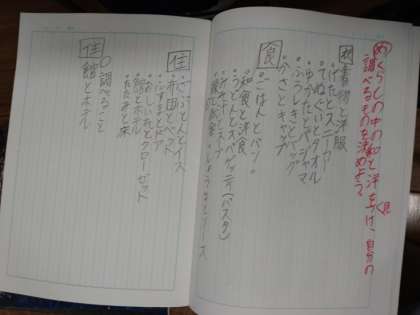 め くらしの中の和と洋を見つけ、自分の
調べるものを決めよう。
衣 着物と洋服
・げたとスニーカー
・てぬぐいとタオル
・ゆかたとパジャマ
・ふろしきとバッグ
食
・ごはんとパン
・和食と洋食
・うどんとスパゲッティ(パスタ)
・みそしるとスープ
しょうゆとソース
住 ・ざぶとんとイス
・布団とベッド
・ふすまとドア
・おしいれとクローゼット
・旅館とホテル
・たたみと床
○調べること
住 旅館とホテル